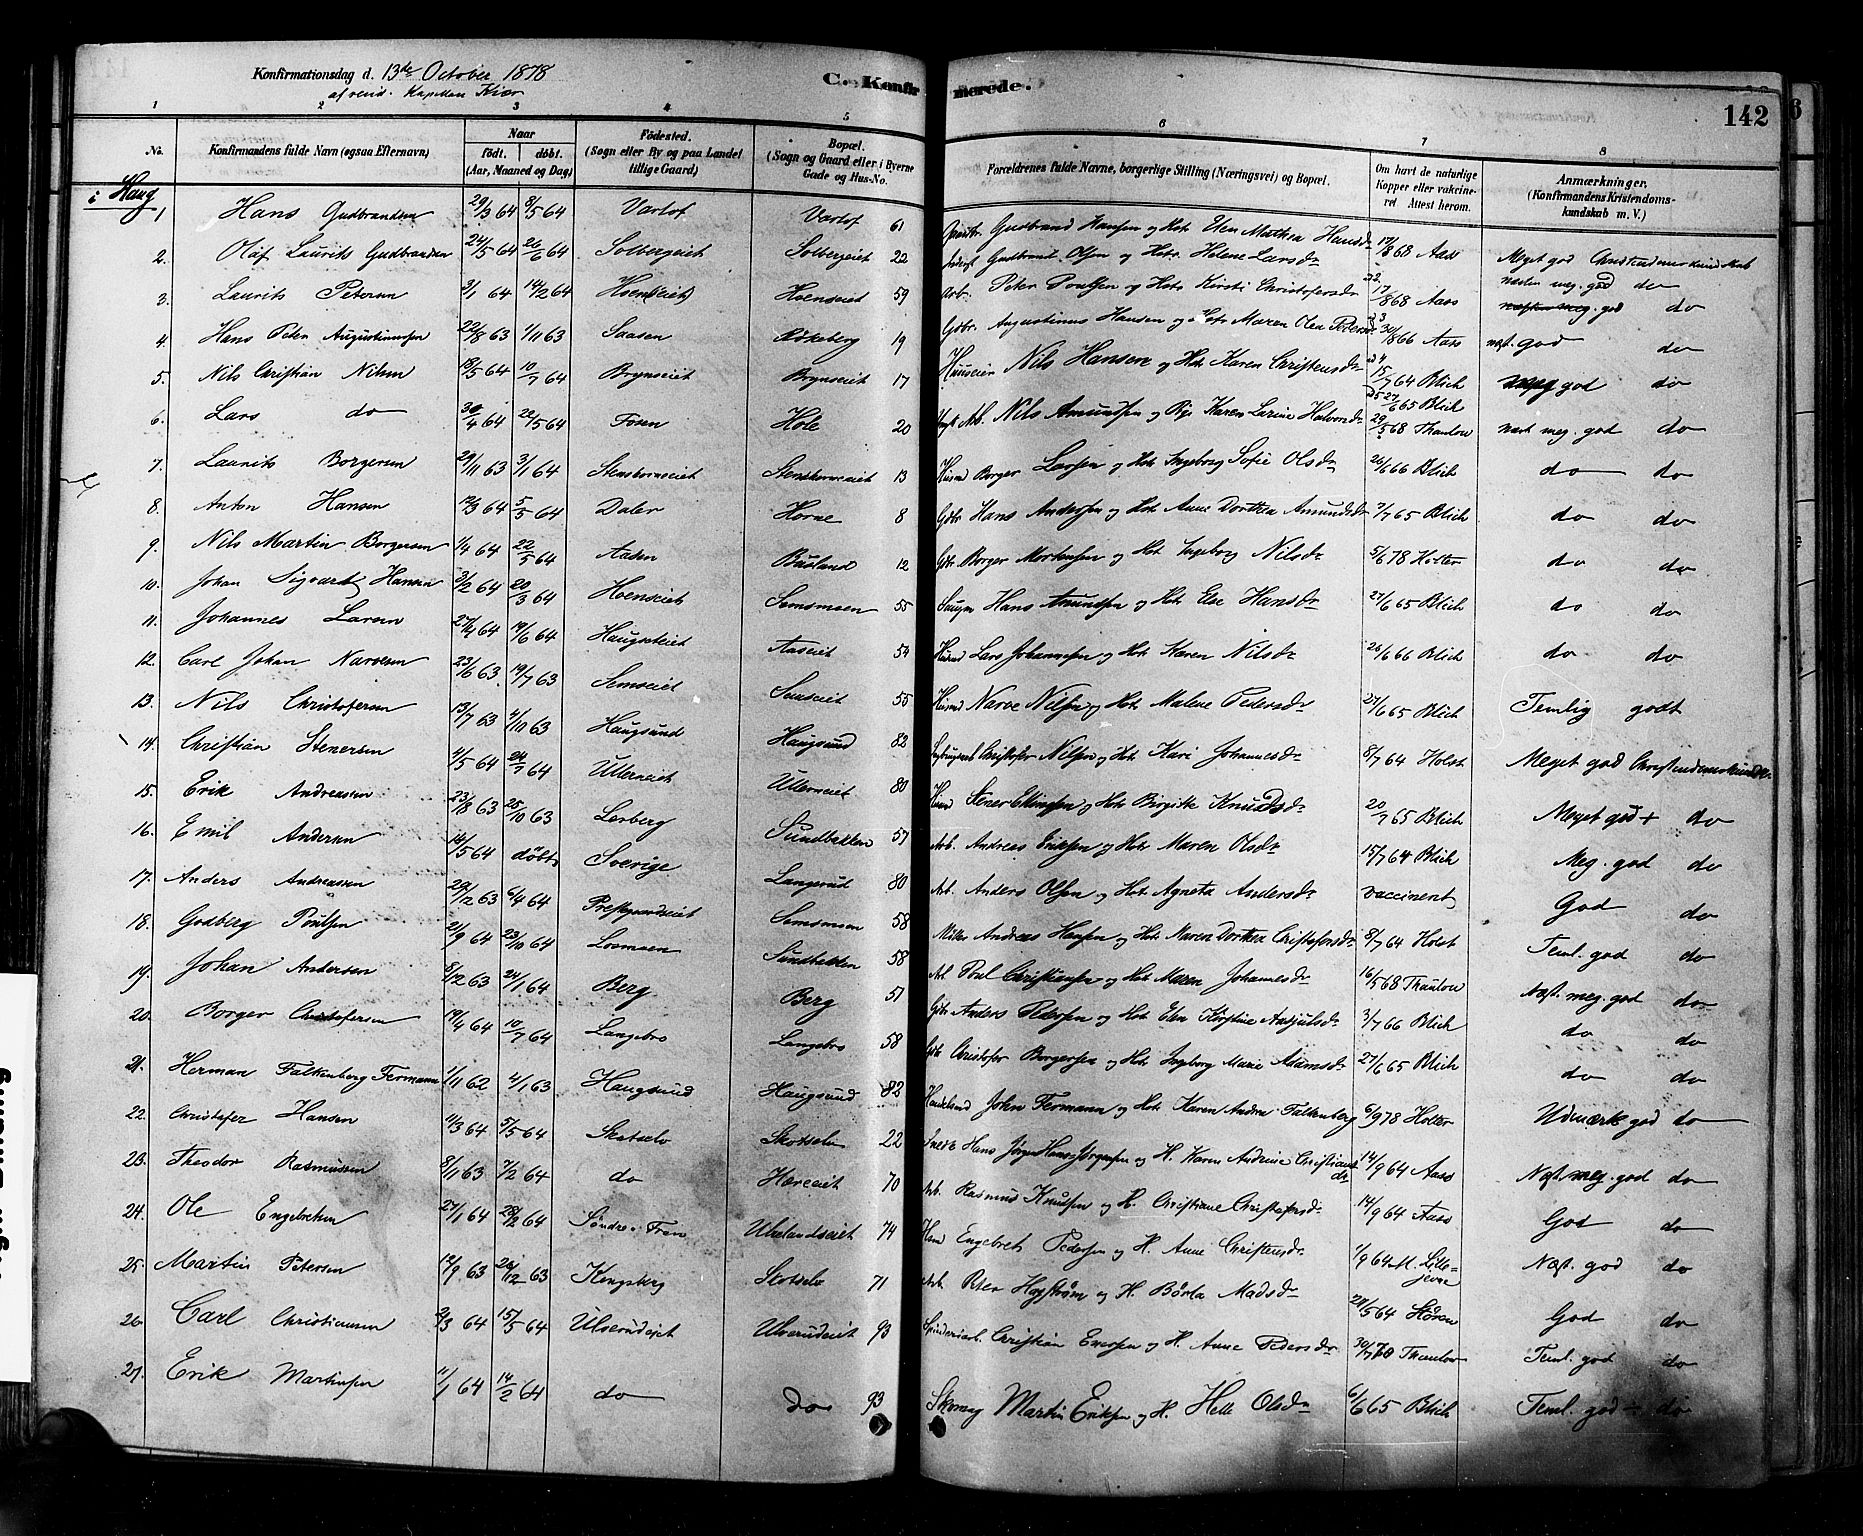 Konfirmationsdag d. 13de October 1878
af resid. Kapellan Kiær
C. Konfirmerede.
142
1 2 3 4 5 6 7 8
No. Konfirmandens fulde Navn (ogsaa Efternavn) Naar født. døbt. (Aar, Maaned og Dag) Fødested. (Sogn eller By og paa Landet tillige Gaard) Bopæl. (Sogn og Gaard eller i Byerne Gade og Hus-No. Forældrenes fulde Navne, borgerlige Stilling (Næringsvei) og Bopæl. Om havt de naturlige Kopper eller vakcineret Attest herom. Anmærkninger. (Konfirmandens Kristendomskundskab m. V.)
i Haug
1 Hans Gudbrandsen 29/3 64 8/5 64 Varlof Varlof 61 Gudbrand Hansen og Hstr Elen Mathea Hansdr 17/8 68 Aass Meget god Christendomskundskab
2. Olaf Laurits Gudbrandsen 24/5 64 26/6 64 Solbergeiet Solbergeiet 22 Gudbrand Olsen og Hstr Helene Larsdr næsten meg. god do
3. Laurits Petersen 3/1 64 14/2 64 Hoenseiet Hoenseiet 59 Arb. Peter Poulsen og Hstr Kirsti Christofersdr 17/8 68 Aass god do
4. Hans Peter Augustinusen 22/8 63 1/11 63 Saasen Røkeberg 19 Gdbr. Augustinus Hansen og Hstr Maren Olea Pedersdr 30/8 66 Aass næst. god do
5. Nils Christian Nilsen 18/5 64 10/7 64 Brynseiet Brynseiet 17 Nils Hansen og Hstr Karen Christensdr 15/7 64 Blich god do
6. Lars do 30/4 64 22/5 64 Fosen Hole 20 Arb. Nils Amundsen og Karen Larine Halvorsdr 27/6 65 Blich 29/5 68 Thaulow næst meg. god do
7. Laurits Borgersen 29/11 63 3/1 64 Stenskorneiet Stenskorneiet 13 Husmd Borger Larsen og Hstr Ingeborg Sofie Olsdr 26/6 66 Blich do do
8. Anton Hansen 12/3 64 5/5 64 Daler Horne 8 Gdbr Hans Andersen og Hstr Anne Dorthea Amundsdr 7/7 65 Blich do do
9. Nils Martin Borgersen 1/4 64 22/5 64 Aasen Busland 12 Gdbr Borger Mortensen og Hstr Ingeborg Nilsdr 5/6 78 Holter do do
10. Johan Sigvart Hansen 3/2 64 20/3 64 Hoenseiet Semsmoen 55 Hans Amundsen og Hstr Else Hansdr 27/6 65 Blich do do
11. Johannes Larsen 27/4 64 19/6 64 Haugseiet Aaseiet 54 Husmd Lars Johannesen og Hstr Karen Nilsdr 26/6 66 Blich do do
12. Carl Johan Narvesen 23/6 63 19/7 63 Semseiet Semseiet 55 Husmd Narve Nilsen og Hstr Malene Pedersdr 27/6 65 Blich Temlig godt
13. Nils Christofersen 13/7 63 4/10 63 Haugsund Haugsund 82 Christofer Nilsen og Hstr Kari Johannesdr 8/7 64 Holst Meget god Christendomskundsk.
14. Christian Stenersen 4/5 64 24/7 64 Ullerneiet Ullerneiet 80 Husmd Stener Ellingsen og Hstr Birgitte Knudsdr 20/7 65 Blich Meget god + do
15. Erik Andreassen 23/8 63 25/10 63 Lerberg Sundbakken 57 Arb. Andreas Eriksen og Hstr Maren Olsdr 15/7 64 Blich Meg. god do
16. Emil Andersen 14/5 64 døbt Sverige Langerud 80 Arb. Anders Olsen og Hstr Agneta Andersdr vaccineret God do
17. Anders Andreassen 29/12 63 6/4 64 Prestegaardseiet Semsmoen 58 Andreas Hansen og Hstr Maren Dorthea Christofersdr 8/7 64 Holst Teml. god do
18. Godberg Poulsen 21/9 64 23/10 64 Losmoen Sundbakken 58 Arb. Poul Christiansen og Hstr Maren Johannesdr 16/5 68 Thaulow Næst. meg. god do
19. Johan Andersen 8/12 63 24/1 64 Berg Berg 51 Gdbr Anders Pedersen og Hstr Elen Kirstine Aasjulsdr 3/7 66 Blich do do
20. Borger Christofersen 19/4 64 10/7 64 Langebro Langebro 58 Christofer Borgersen og Hstr Ingeborg Marie Adamsdr 27/6 65 Blich do do
21. Herman Falkenberg Fermann 1/11 62 4/1 63 Haugsund Haugsund 82 Handelsmd John Fermann og Hstr Karen Andrea Falkenberg 6/9 78 Holter Udmærk god do
22. Christofer Hansen 11/3 64 5/5 64 Skotselv Skotselv 22 Hans Jørgen Hans Jørgensen og H. Karen Andrine Christiansdr 14/9 64 Aass Næst meg. god do
23. Theodor Rasmussen 8/11 63 7/2 64 do Hæreeiet 70 Arb. Rasmus Knudsen og H. Christiane Christofersdr 14/9 64 Aass God do
24. Ole Engebretsen 27/1 64 28/2 64 Søndre Fron Ulvelandseiet 74 Engebret Pedersen og H. Anne Christensdr 1/9 64 M. Lillejevre Næst. god do
25. Martin Petersen 12/9 63 26/12 63 Kongsberg Skotselv 71 Arb. Peter Hagstrøm og H. Børta Madsdr 28/5 64 Støren God do
26. Carl Christiansen 2/3 64 15/5 64 Ulverudejet Ulverudeiet 93 Christian Evensen og H. Anne Pedersdr 30/7 78 Thaulow Teml. god do
27. Erik Martinsen 11/1 64 14/2 64 do do 93 Martin Eriksen og H. Helle Olsdr 6/6 65 Blich Teml. god do